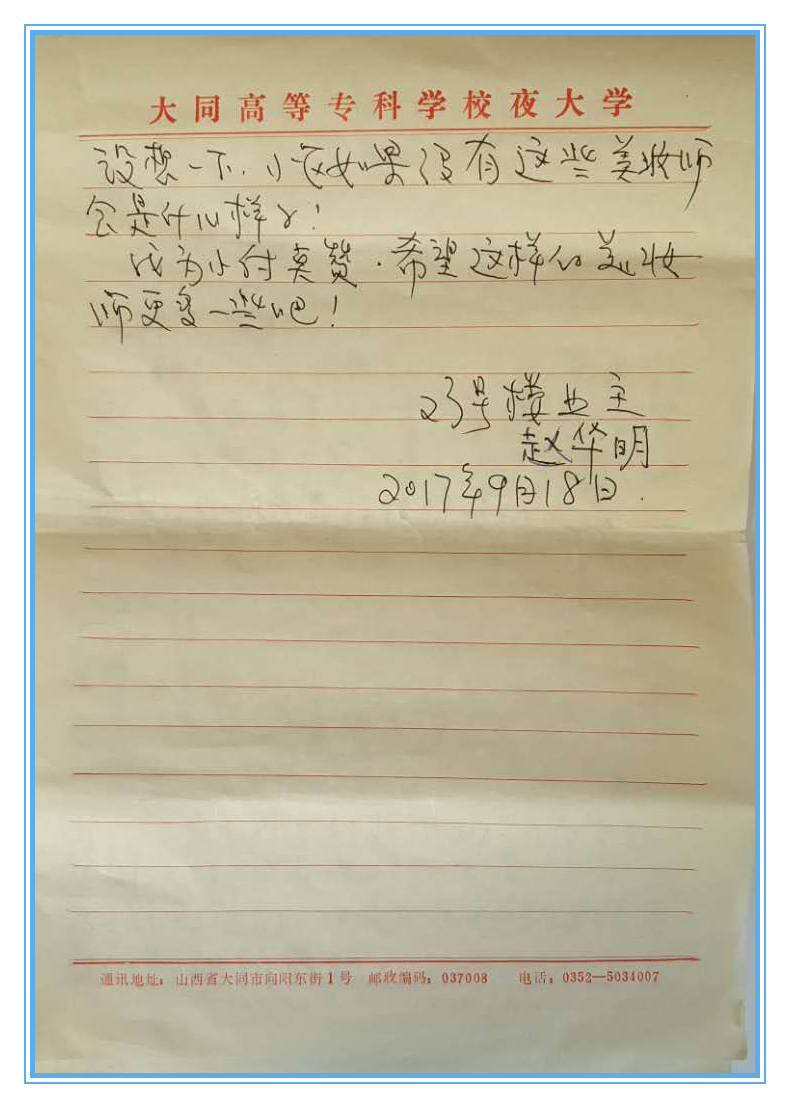 大同高等专科学校夜大学
设想一下.小区如果没有这些美妆师
会是什么样了!
成为小付真赞.希望这样的美妆
师更多一些吧!
23号楼业主
赵华明
2017年9月18日.
通讯地址：山西省大同市向阳东街1号 邮政编码：037008 电话：0352—5034007